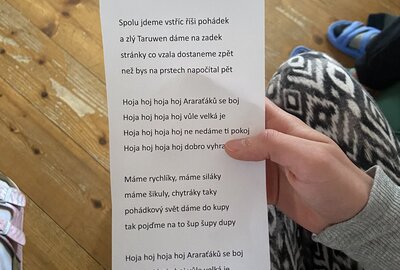 Spolu jdeme vstříc říši pohádek
a zlý Taruwen dáme na zadek
stránky co vzala dostaneme zpět
než bys na prstech napočítal pět
Hoja hoj hoja hoj Araraťáků se boj
Hoja hoj hoja hoj vůle velká je
Hoja hoj hoja hoj ne nedáme ti pokoj
Hoja hoj hoja hoj dobro
Máme rychlíky, máme siláky
máme šikuly, chytráky taky
pohádkový svět dáme do kupy
tak pojďme na to šup šupy dupy
Hoja hoj hoja hoj Araraťáků se boj
Hoja hoj hoja hoj vůle velká je